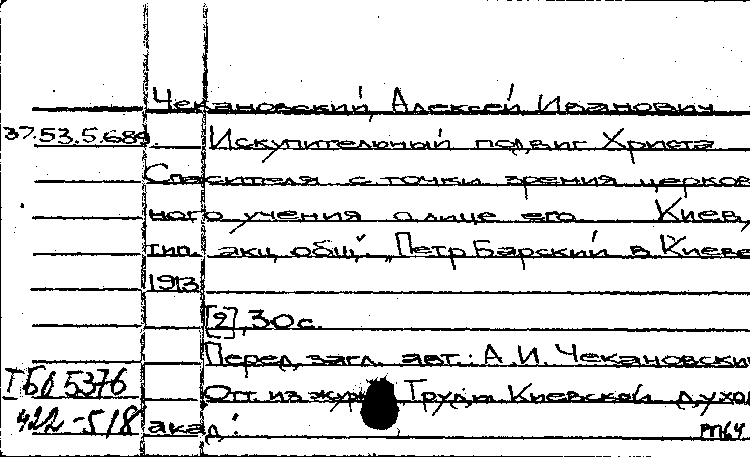 Чекановский, Алексей Иванович
37.53.5.689. Искупительный подвиг Христа
Спасителя с точки зрения церков
ного учения о лице его. Киев,
тип. акц. общ. "Петр Барский в Киеве
1913
[2], 30 с.
Перед загл. авт.: А.И. Чекановский
ГБЛ 5376
Отт. из журн. Труды Киевской духов
422-518 акад.
РП64